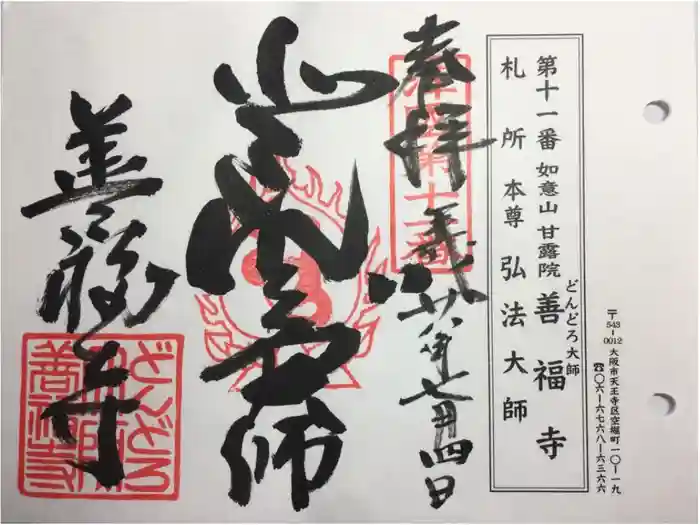 〒543-0012 大阪市天王寺区空堀町一〇-一九
☎〇六-六七六八-六三六六
どんどろ大師
第十一番 如意山 甘露院 善福寺
札所本尊 弘法大師
奉拝
平成廿八年七月四日
大師
善福寺
どんどろ
大師
善福寺